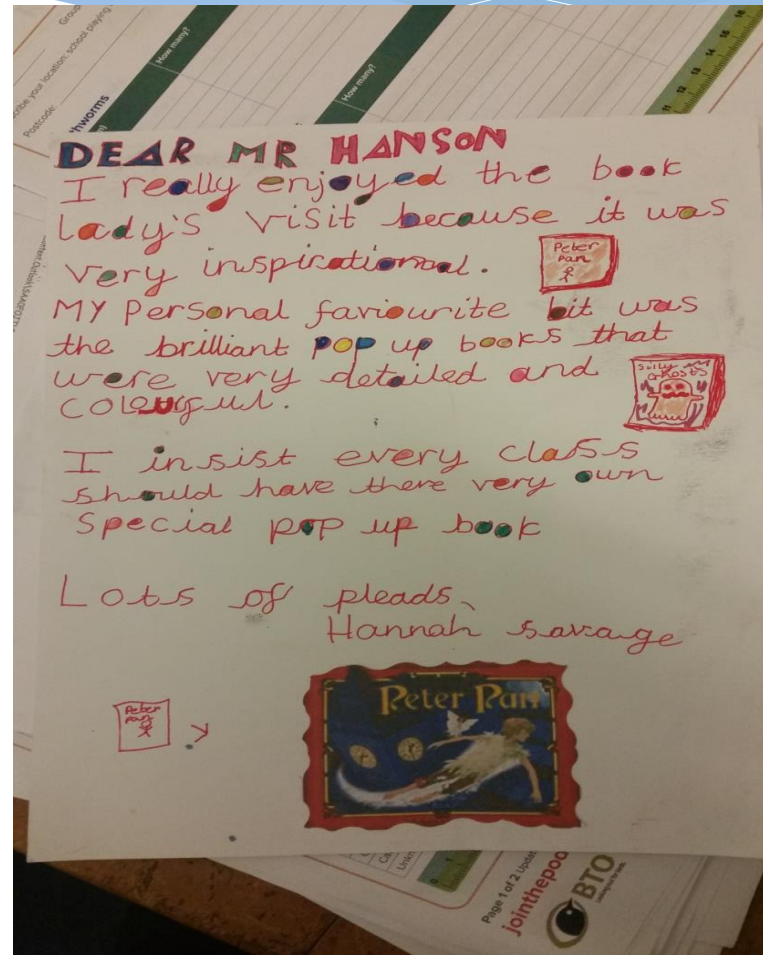 How many?
How many?
Postcode:
DEAR MR HANSON
I really enjoyed the book
Lady's visit because it was
very inspirational.
Peter
Pan
MY Personal faviourite bit was
the brilliant pop up books that
were very detailed and
colourful.
I insist every class
should have there very own
Special pop up book
Lots of pleads,
Hannah savage
Peter
Pan
Peter Pan
Page 1 of 2
jointhepoo
BTO